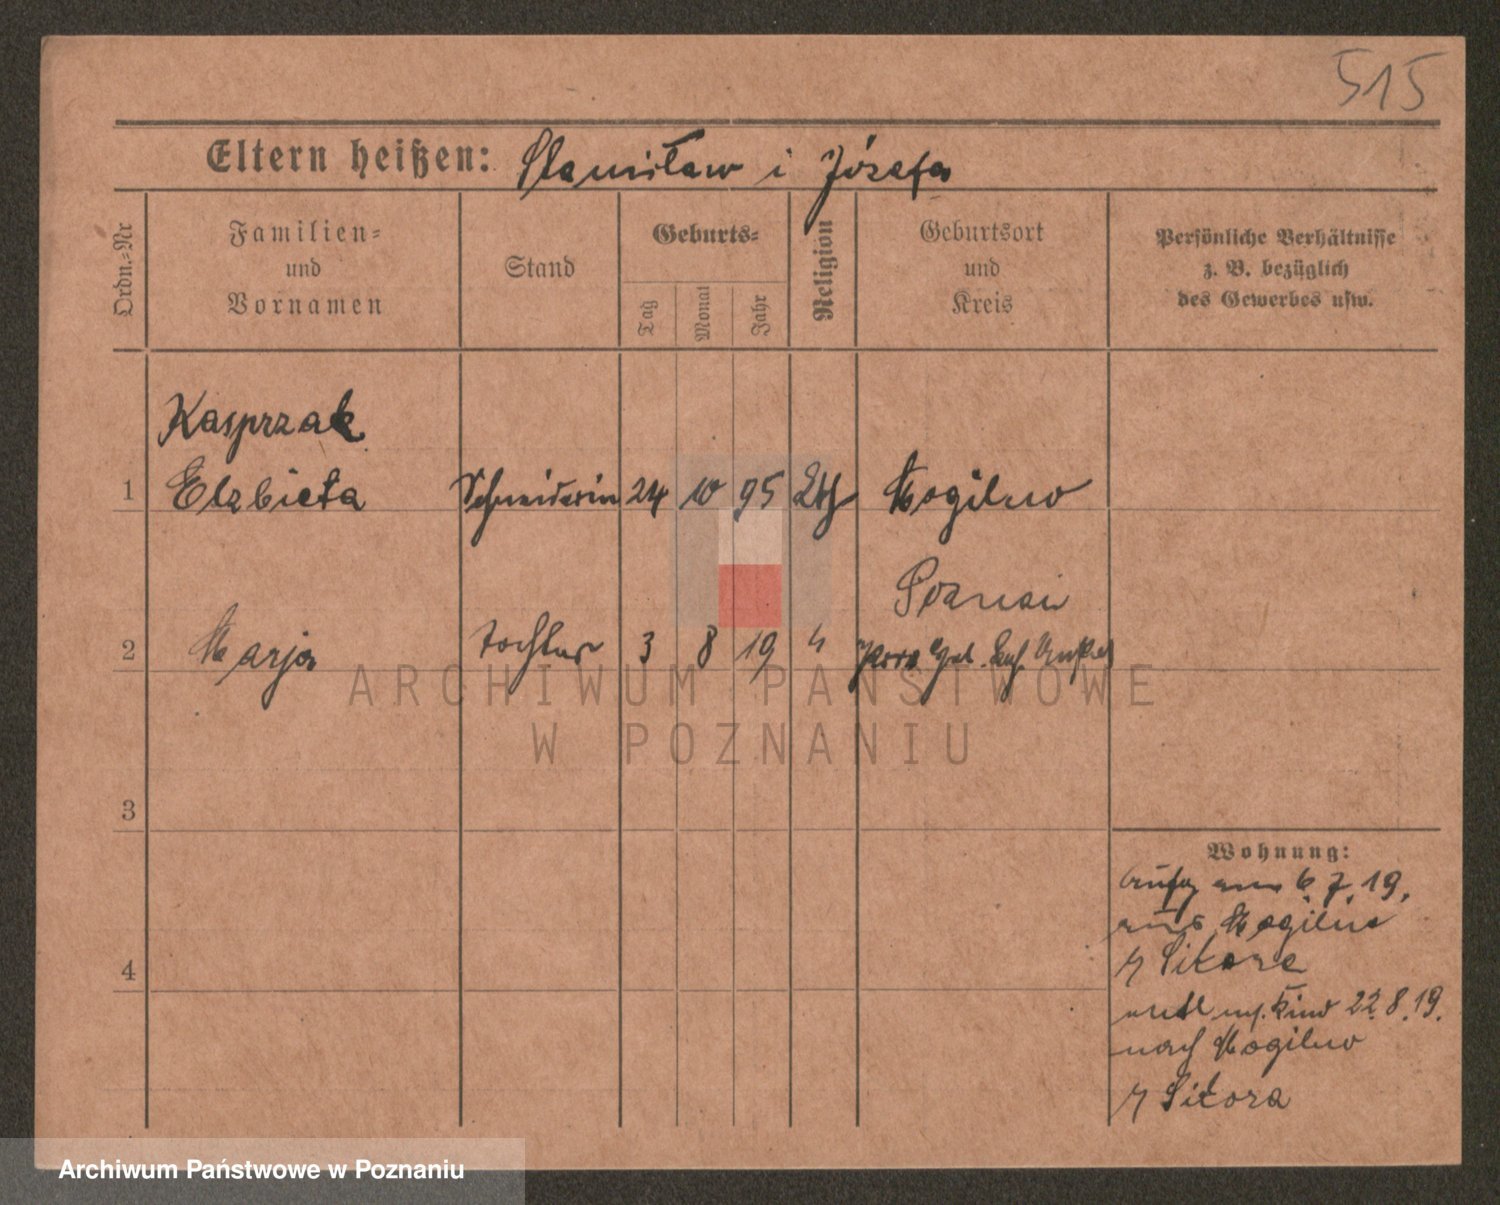 515
Eltern heißen: Stanisław i Józefa
Ordn.-Nr
Familien-
und
Vornamen
Stand
Geburts-
Tag
Monat
Jahr
Religion
Geburtsort
und
Kreis
Persönliche Verhältnisse
z. B. bezüglich
des Gewerbes usw.
Kasprzak
1 Elzbieta Schneiderin 24 10 95 kth Mogilno
Poznań
2 Marja Tochter 3 8 19 "
ARCHIWUM PAŃSTWOWE
W POZNANIU
3
4
Wohnung:
6 7 19.
aus Mogilno
Sikora
entl Kind 22.8.19.
nach Mogilno
Sikora
Archiwum Państwowe w Poznaniu